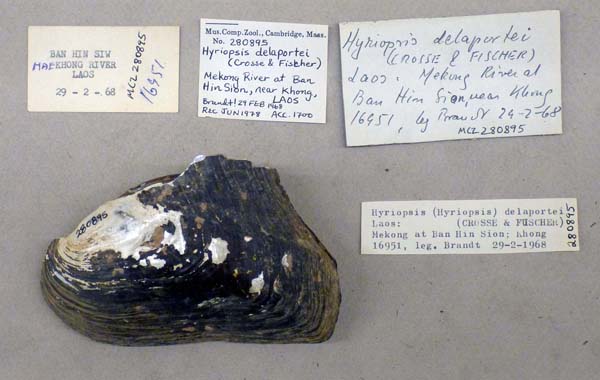 BAN HIN SIW
MAEKHONG RIVER
LAOS
29 - 2 -. 68
MCZ 280895
16951
Mus. Comp. Zool., Cambridge, Mass.
No. 280895
Hyriopsis delaportei
(Crosse & Fischer)
Mekong River at Ban
Hin Sion, near Khong,
LAOS
Brandt! 29 FEB 1968
Rec JUN 1978 Acc. 1700
Hyriopsis delaportei
(CROSSE & FISCHER)
Laos: Mekong River at
Ban Hin Sion, near Khong
16951, leg Brandt 29-2-68
MCZ 280895
280895
Hyriopsis (Hyriopsis) delaportei
Laos: (CROSSE & FISCHER)
Mekong at Ban Hin Sion; Khong
16951, leg. Brandt 29-2-1968
280895